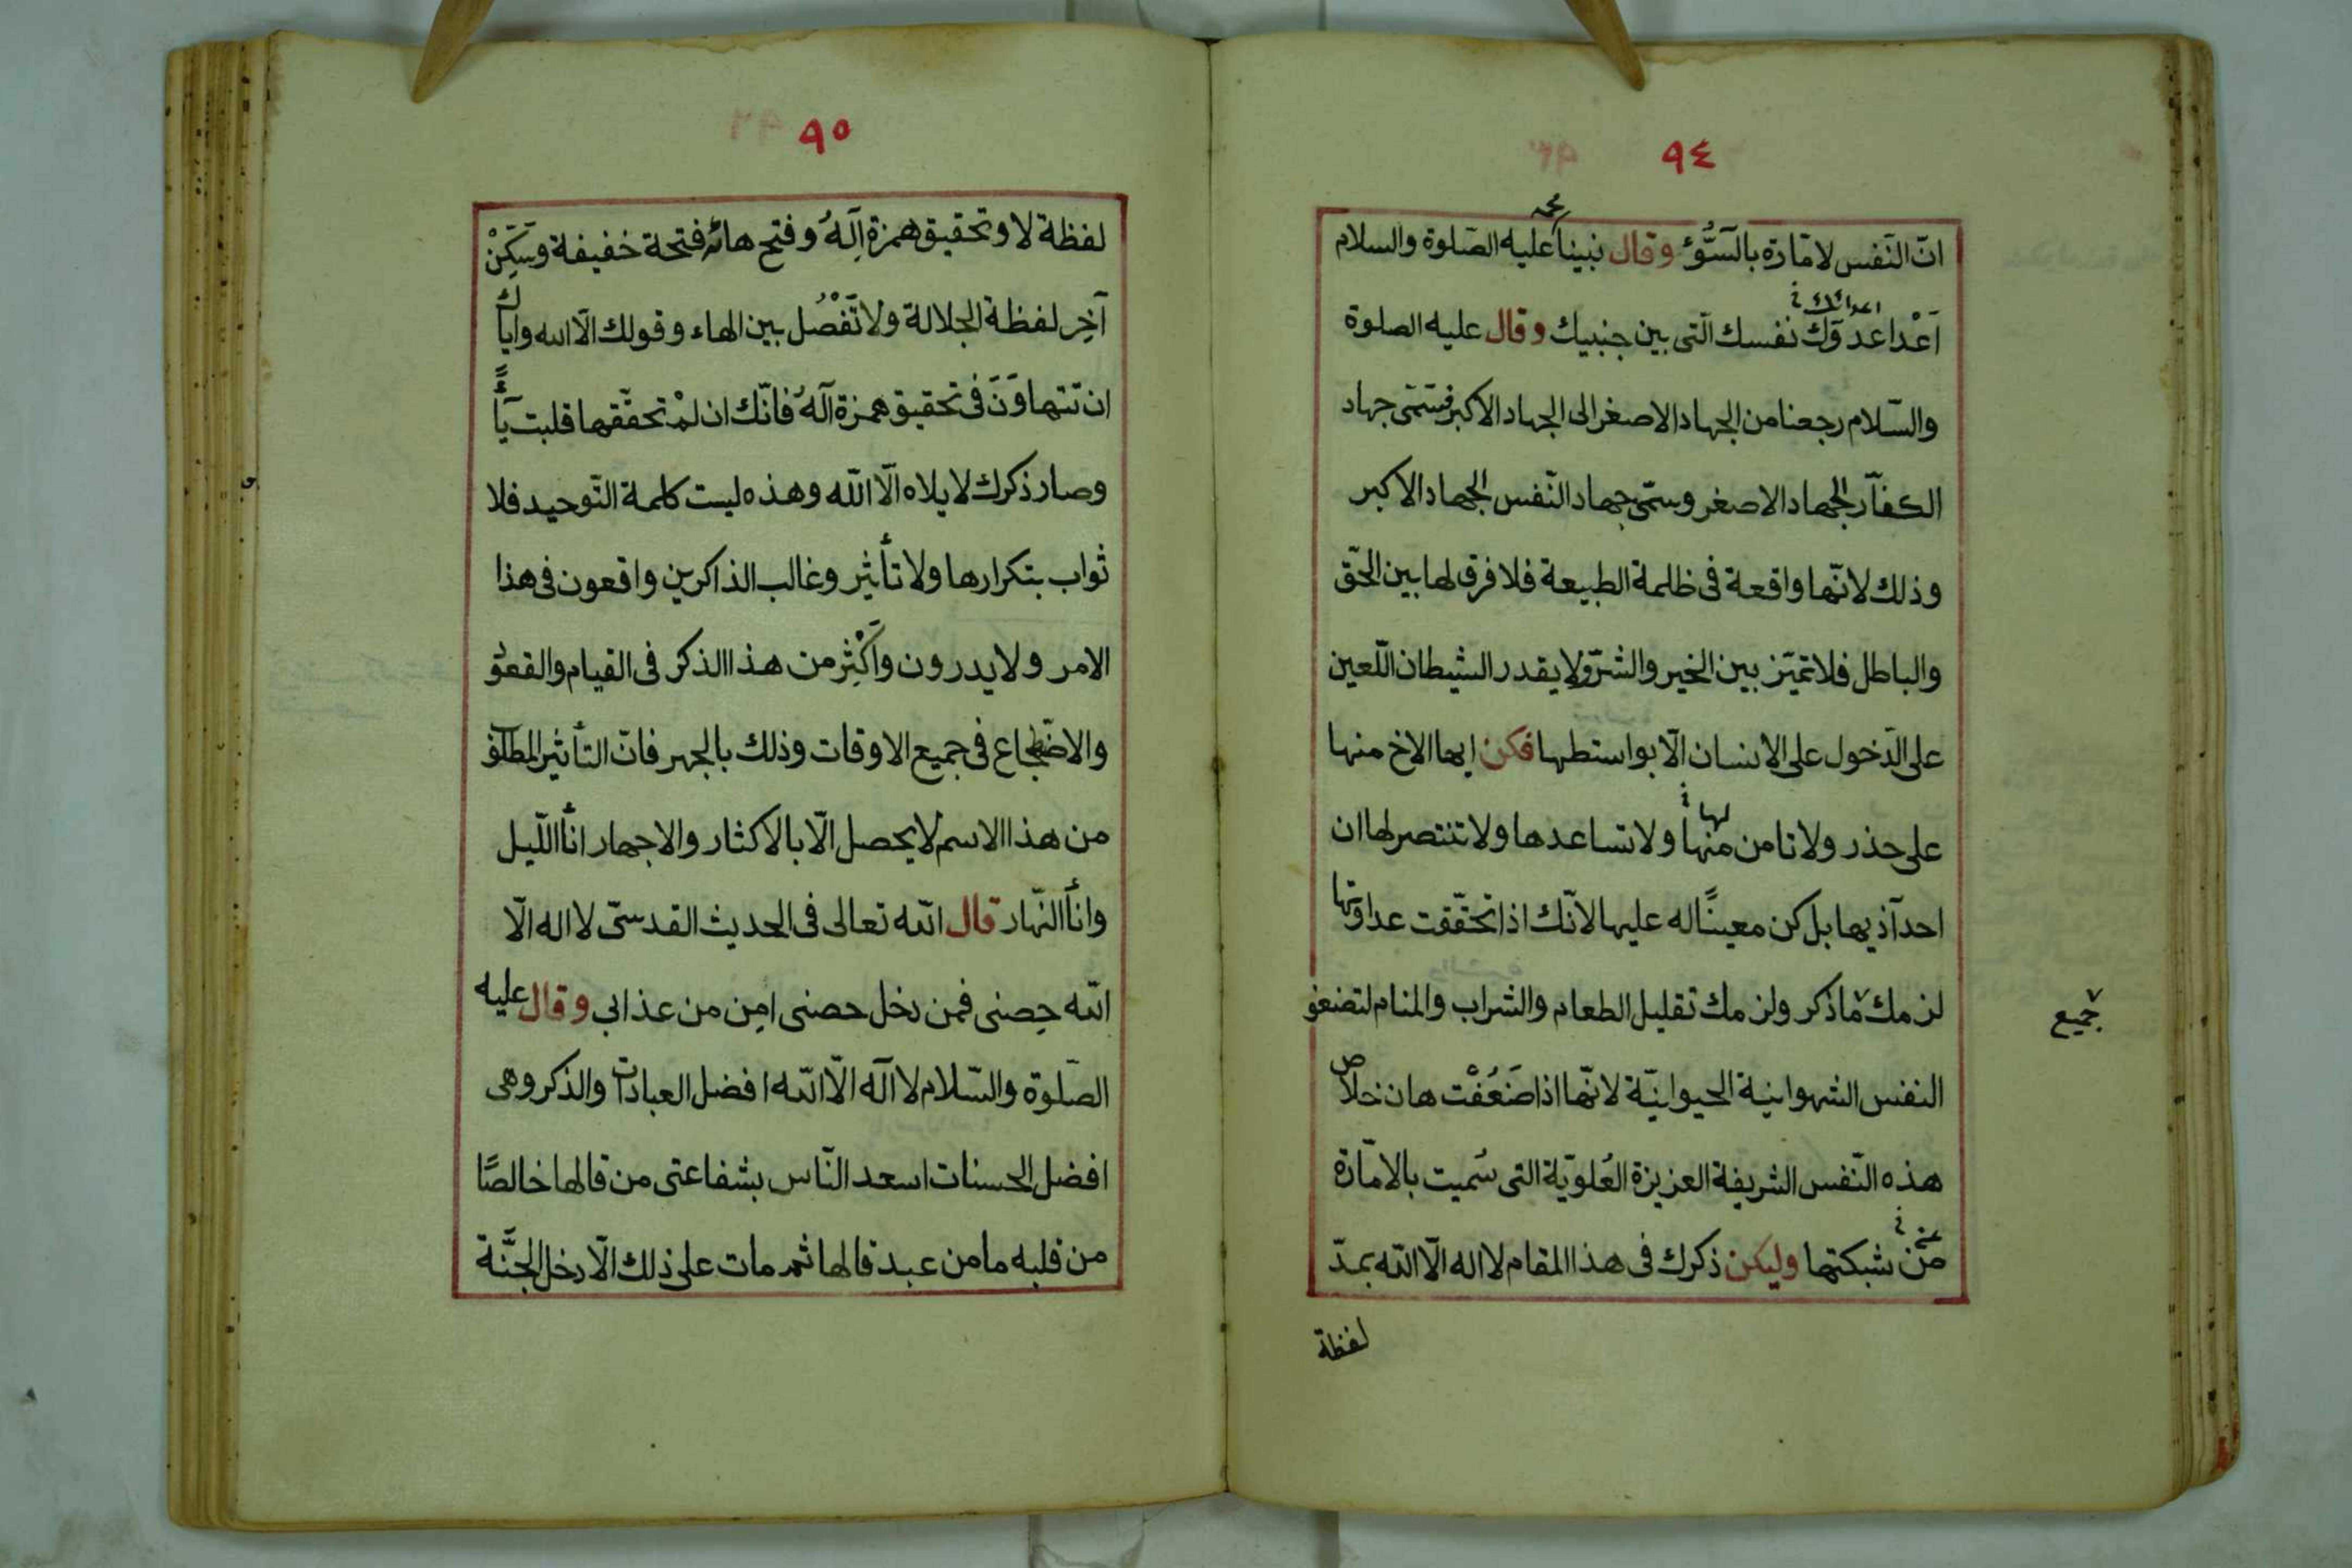 ٩٤
انّ النّفس لامّارة بالسّوٓء وقال نبينا محمد عليه الصّلوة والسلام
اعدائك
اَعْدا عدوّك نفسك الّتى بين جنبيك وقال عليه الصلوة
والسّلام رجعنا من الجهاد الاصغر الى الجهاد الاكبر فسمّى جهاد
الكفّار الجهاد الاصغر وسمّى جهاد النّفس الجهاد الاكبر
وذلك لانّها واقعة فى ظلمة الطبيعة فلا فرق لها بين الحقّ
والباطل فلا تميّز بين الخير والشرّ ولا يقدر الشيطان اللّعين
على الدّخول على الانسان الّا بواسطتها فكن ايها الاخ منها
لها
على حذر ولا تامن منها ولا تساعدها ولا تنتصر لها ان
احد آذيها بل كن معينًا له عليها لانّك اذا تحقّقت عداوتها
لزمك ما ذكر ولزمك تقليل الطعام والشراب والمنام لتضعف
جميع
النفس الشهوانية الحيوانيّة لانّها اذا ضَعُفْت هان خلاص
هذه النّفس الشريفة العزيزة العُلويّة التى سُميت بالامّارة
من شبكتها وليكن ذكرك فى هذا المقام لا اله الّا اللّه بمدّ
لفظة
٩٥
لفظة لا وتحقيق همزة اِلَهَ وفتح هائه فتحة خفيفة وسَكِّنْ
آخِر لفظة الجلالة ولا تَفْصُل بين الهاء وقولك الّا الله واياك
ان تتهاوَنَ فى تحقيق همزة اله فانّك ان لمْ تحقّقها قلبت ياءً
وصار ذكرك لا يلاه الّا اللّه وهذه ليست كلمة التّوحيد فلا
ثواب بتكرارها ولا تأثير وغالب الذاكرين واقعون فى هذا
الامر ولا يدرون واَكْثِر من هذا الذكر فى القيام والقعود
والاضطجاع فى جميع الاوقات وذلك بالجهر فانّ التأثير المطلوب
من هذا الاسم لا يحصل الّا بالاكثار والاجهار انأ اللّيل
وانأ النّهار قال اللّه تعالى فى الحديث القدسىّ لا اله الّا
اللّه حِصنى فمن دخل حصنى امِن من عذابى وقال عليه
الصّلوة والسّلام لا آله الّا اللّه افضل العبادات والذكر وهى
افضل الحسنات اسعد النّاس بشفاعتى من قالها خالصًا
من قلبه ما من عبد قالها ثم مات على ذلك الّا دخل الجنَّة